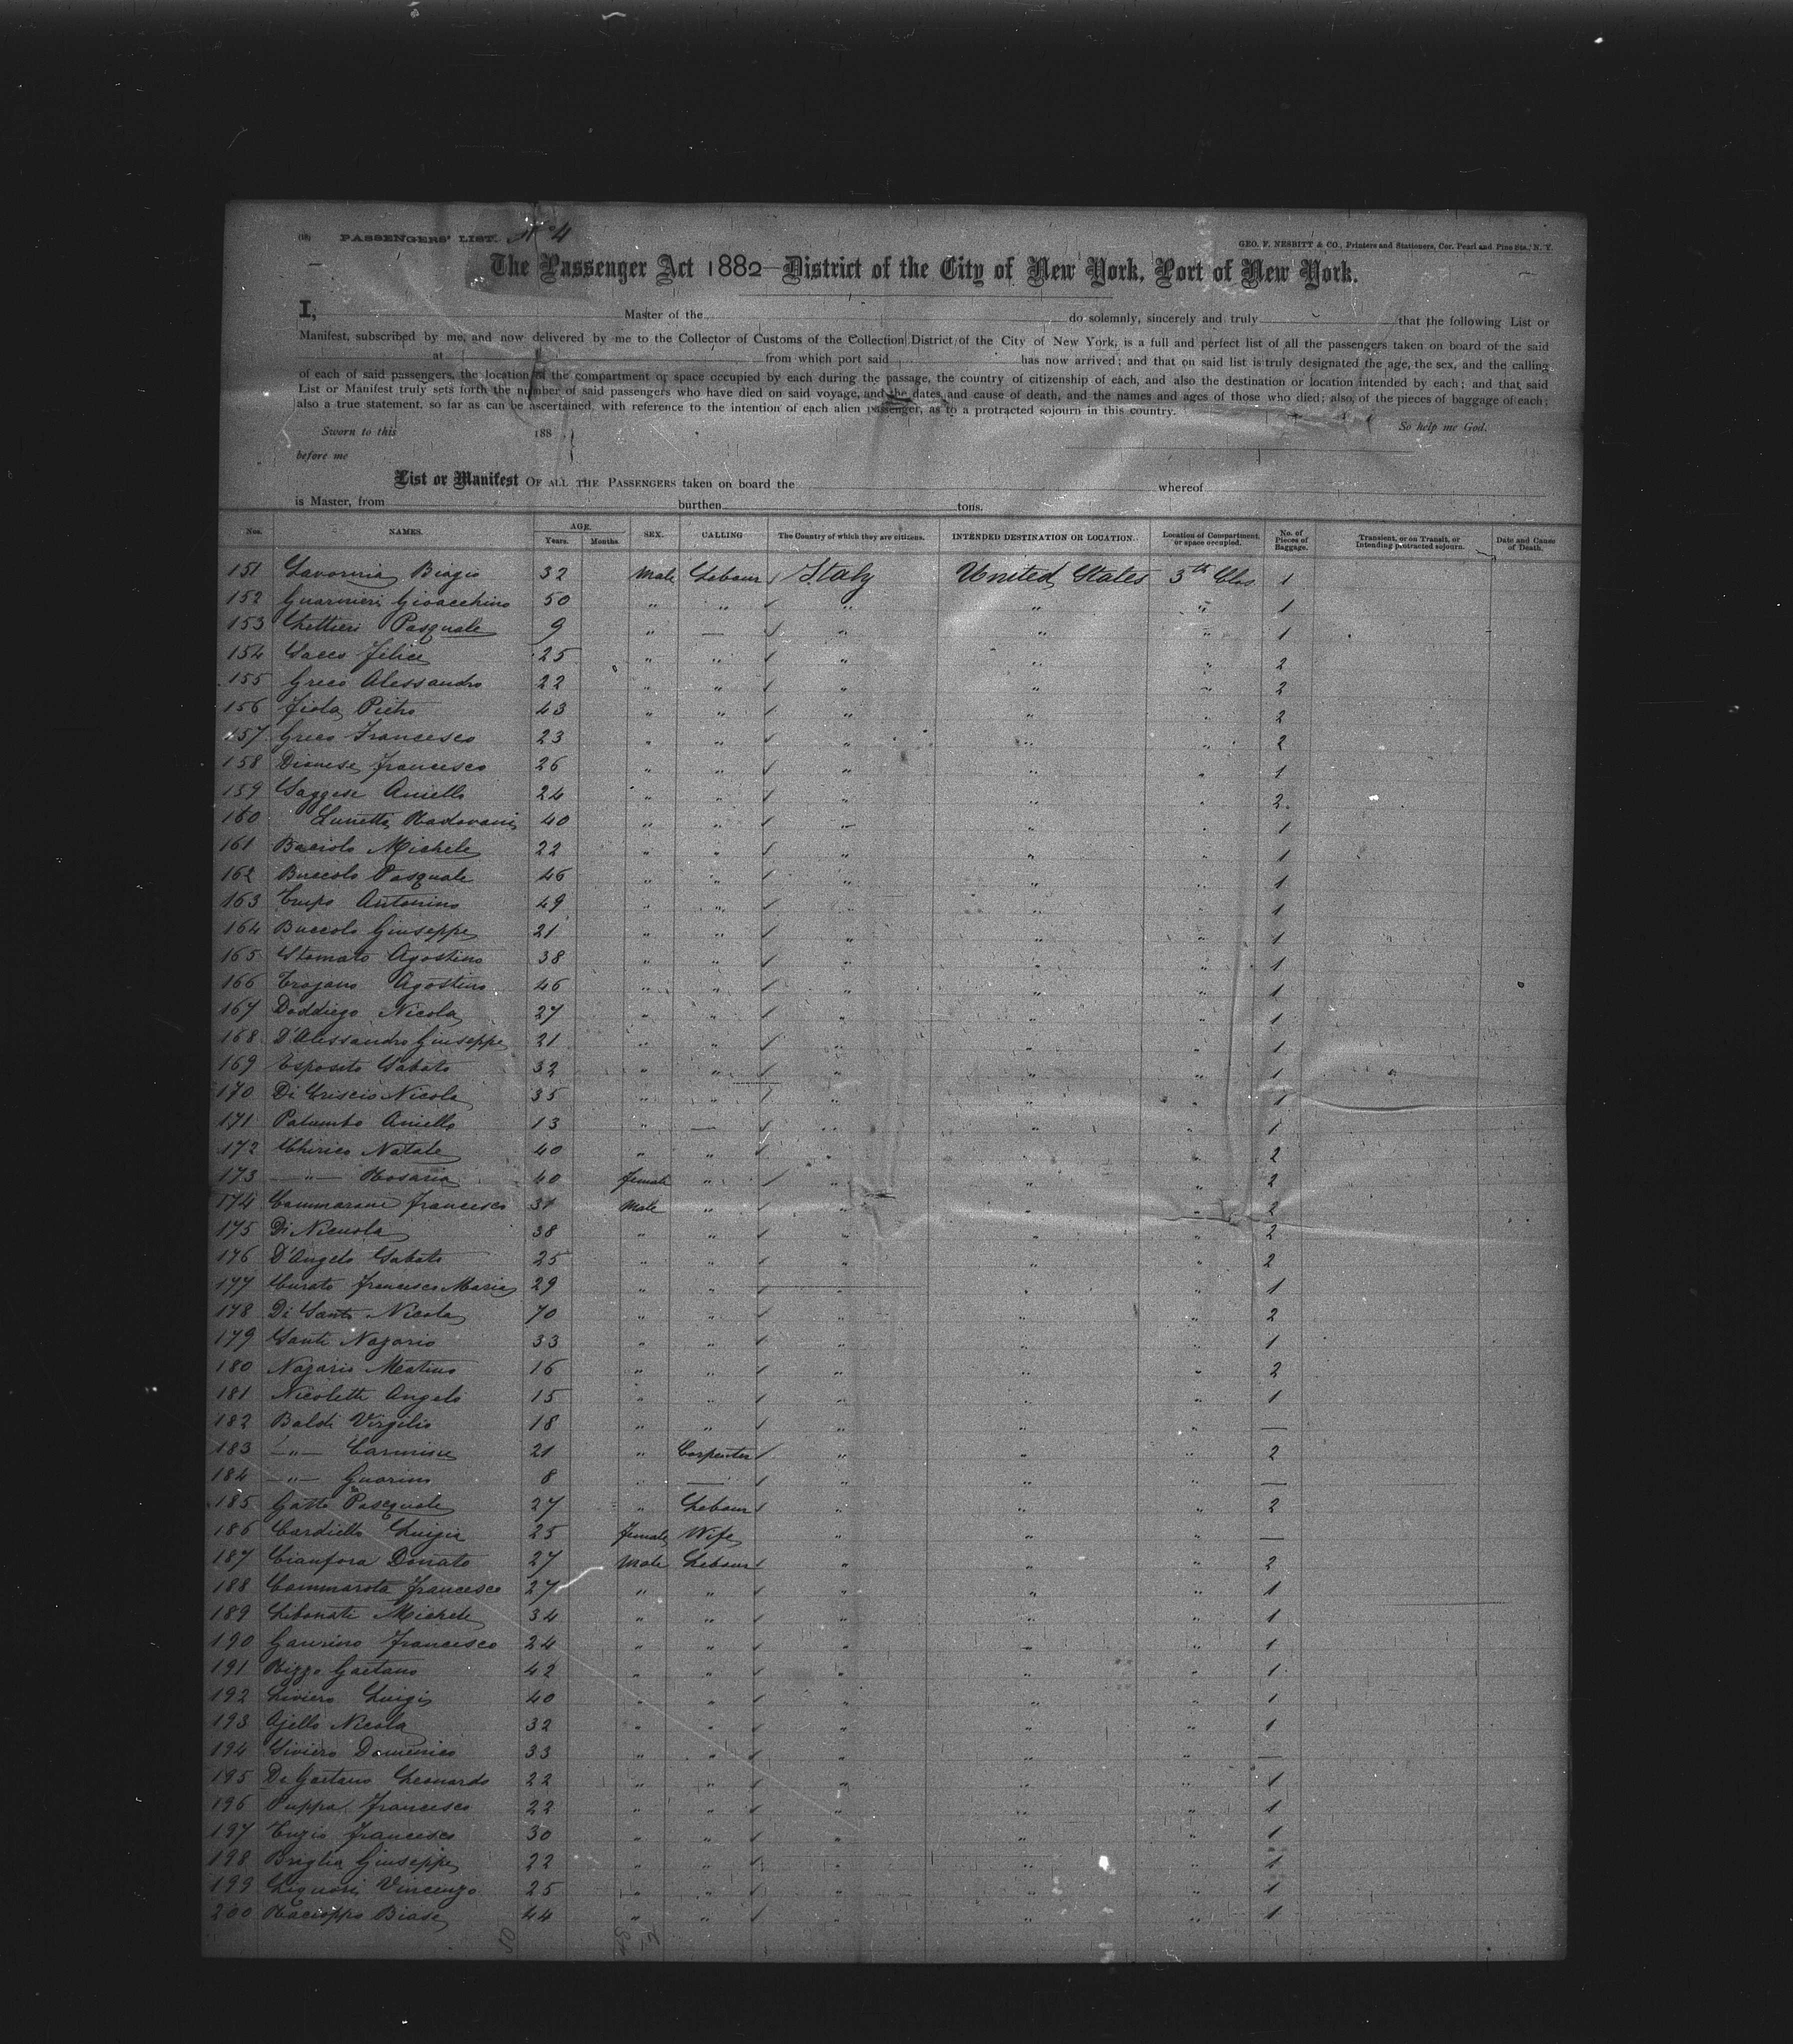 (18) PASSENGERS' LIST. No 4
GEO. F. NESBITT & CO., Printers and Stationers, Cor. Pearl and Pine Sts., N. Y.
The Passenger Act 1882 District of the City of New York, Port of New York.
I, Master of the do solemnly, sincerely and truly that the following List or
Manifest, subscribed by me, and now delivered by me to the Collector of Customs of the Collection District of the City of New York, is a full and perfect list of all the passengers taken on board of the said
at from which port said has now arrived; and that on said list is truly designated the age, the sex, and the calling
of each of said passengers, the location of the compartment or space occupied by each during the passage, the country of citizenship of each, and also the destination or location intended by each; and that said
List or Manifest truly sets forth the number of said passengers who have died on said voyage, and the dates and cause of death, and the names and ages of those who died; also, of the pieces of baggage of each;
also a true statement, so far as can be ascertained, with reference to the intention of each alien passenger, as to a protracted sojourn in this country.
Sworn to this 188 So help me God.
before me
List or Manifest OF ALL THE PASSENGERS taken on board the whereof
is Master, from burthen tons.
Nos. NAMES. AGE. Years. Months. SEX. CALLING The Country of which they are citizens. INTENDED DESTINATION OR LOCATION. Location of Compartment or space occupied. No. of Pieces of Baggage. Transient, or on Transit, or Intending protracted sojourn. Date and Cause of Death.
151 Biagio 32 Male Labour Italy United States 3th Clas 1
152 Guarnieri Gioacchino 50 " " " " " 1
153 Pasquale 9 " — " " " 1
154 Sacco Felice 25 " " " " " 2
155 Greco Alessandro 22 " " " " " 2
156 Fiola Pietro 43 " " " " " 2
157 Greco Francesco 23 " " " " " 2
158 Francesco 26 " " " " " 1
159 Saggese Aniello 24 " " " " " 2
160 Lunetta 40 " " " " " 1
161 Michele 22 " " " " " 1
162 Buccolo Pasquale 46 " " " " " 1
163 Antonino 49 " " " " " 1
164 Buccolo Giuseppe 21 " " " " " 1
165 Stomato Agostino 38 " " " " " 1
166 Trojano Agostino 46 " " " " " 1
167 Doddiego Nicola 27 " " " " " 1
168 D'Alessandro Giuseppe 21 " " " " " 1
169 Esposito Sabato 32 " " " " " 1
170 Di Criscio Nicola 35 " " " " " 1
171 Palumbo Aniello 13 " — " " " 1
172 Chirico Natale 40 " " " " " 2
173 — " — Rosaria 40 female " " " " 2
174 Cammarano Francesco 31 Male " " " " 2
175 Di Nicuola 38 " " " " " 2
176 D'Angelo Sabato 25 " " " " " 2
177 Curato Francesco Maria 29 " " " " " 1
178 Di Santo Nicola 70 " " " " " 2
179 Santi Nazario 33 " " " " " 1
180 Nazario 16 " " " " " 2
181 Nicoletti Angelo 15 " " " " " 1
182 Baldi Virgilio 18 " " " " " —
183 — " — Carmine 21 " Carpenter " " " 2
184 — " — Guarino 8 " — " " " —
185 Gatto Pasquale 27 " Labour " " " 2
186 Cardiello Luigia 25 female Wife " " " —
187 Cianfora Donato 27 Male Labour " " " 2
188 Cammarota Francesco 27 " " " " " 1
189 Libonati Michele 34 " " " " " 1
190 Gaurino Francesco 24 " " " " " 1
191 Rizzo Gaetano 42 " " " " " 1
192 Siviero Luigi 40 " " " " " 1
193 Ajello Nicola 32 " " " " " 1
194 Siviero Domenico 33 " " " " " —
195 De Gaetano Leonardo 22 " " " " " 1
196 Puppa Francesco 22 " " " " " 1
197 Francesco 30 " " " " " 1
198 Briglia Giuseppe 22 " " " " " 1
199 Liguori Vincenzo 25 " " " " " 1
200 Racioppo Biase 44 " " " " " 1